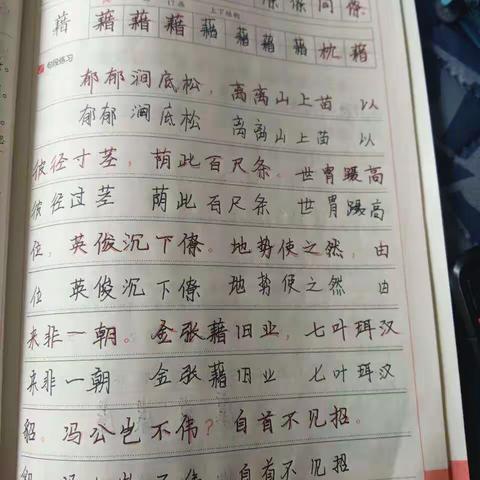 同 僚
上下结构
藉 藉 藉 藉 藉 藉 藉 藉 枕 藉
句段练习
郁郁涧底松，离离山上苗 以
郁郁涧底松 离离山上苗 以
彼径寸茎，荫此百尺条。世胄蹑高
彼径过茎 荫此百尺条 世胄蹑高
位，英俊沉下僚。地势使之然，由
位 英俊沉下僚 地势使之然 由
来非一朝。金张藉旧业，七叶珥汉
来非一朝 金张藉旧业 七叶珥汉
貂。冯公岂不伟？自首不见招。
貂 冯公岂不伟 自首不见招